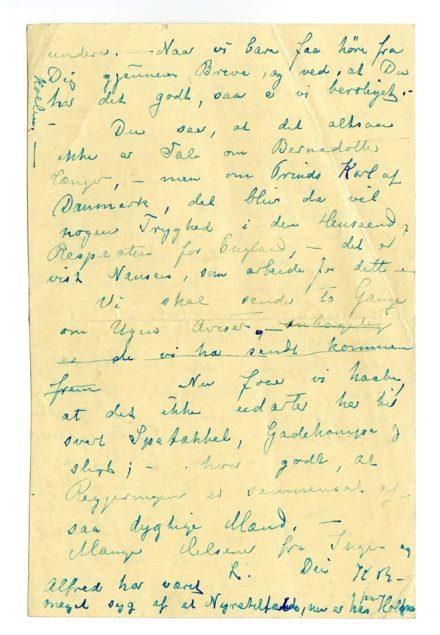 undere. — Naar vi bare faa høre fra
Dig gjennem Breve, og ved, at Du
har det godt, saa er vi beroliget. —
Du ser, at det altsaa
ikke er Tale om Bernadotte
længer, — men om Prinds Karl af
Danmark, det blir da vel
nogen Tryghed i den Henseende,
Respecten for England, — det er
vist Nansen, som arbeide for dette
Vi skal sende to Gange
om Ugen Aviser,
er de vi har sendt kommen
frem Nu faar vi haabe,
at det ikke udarter her til
svert Spetakkel, Gadekampe og
sligt; — hvor godt, at
Regjeringen er sammensat af
saa dygtige Mænd. —
Mange Helsener fra Inger og
Din
Alfred har været
meget syg af et Nyretilfælde, nu er han